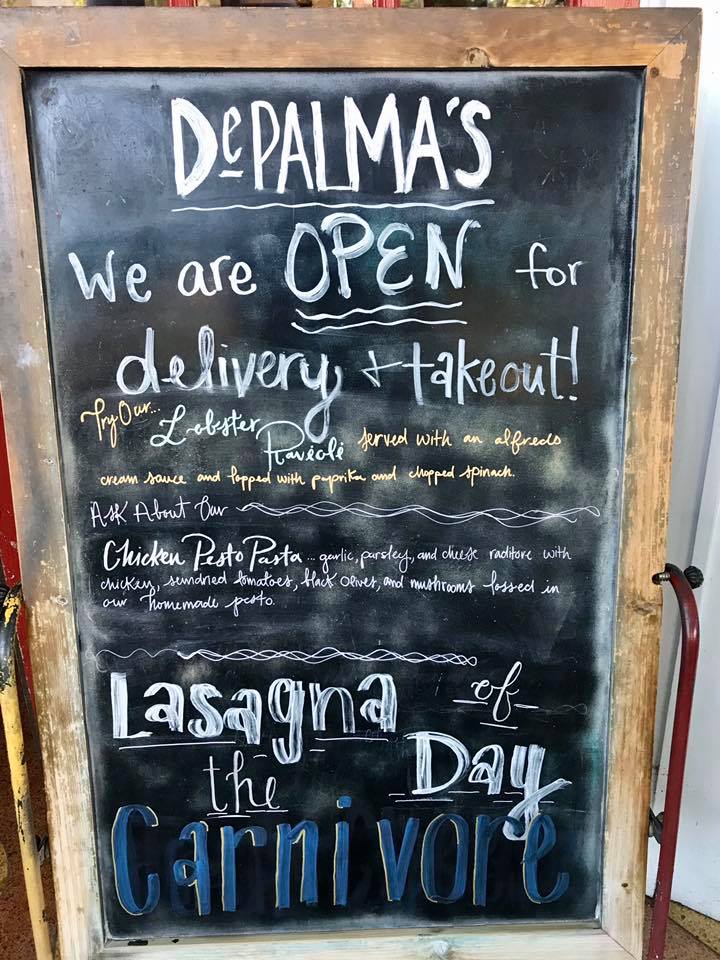 DePALMA'S
We are OPEN for
delivery + takeout!
Try Our... Lobster Ravioli served with an alfredo
cream sauce and topped with paprika and chopped spinach.
Ask About Our
Chicken Pesto Pasta ... garlic, parsley, and cheese raditore with
chicken, sundried tomatoes, black olives, and mushrooms tossed in
our homemade pesto.
Lasagna of
the Day
Carnivore